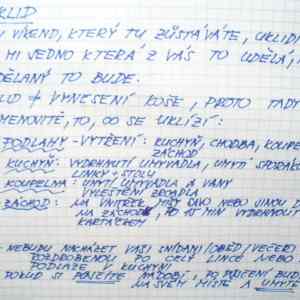 KLID
VÍKEND, KTERÝ TU ZŮSTÁVÁTE, UKLIDI
MI JEDNO KTERÁ Z VÁS TO UDĚLÁ,
DĚLANÝ TO BUDE.
+ VYNESENÍ KOŠE, PROTO TADY
MENOVITĚ, TO, CO SE UKLÍZÍ:
PODLAHY - VYTŘENÍ: KUCHYŇ, CHODBA, KOUPE
ZÁCHOD
KUCHYŇ: VYDRHNUTÍ UMYVADLA, UMYTÍ SPORÁKU
LINKY + STOLU
KOUPELNA: UMYTÍ UMYVADLA A VANY
VYLEŠTĚNÍ ZRCADLA
ZÁCHOD: NA VNITŘEK MÍSY SAVO NEBO JINOU D
NA ZÁCHOD, PO 15 MIN VYDRHNOUT
KARTÁČEM
- NEBUDU NACHÁZET VAŠI SNÍDANI/OBĚD/VEČEŘI
ROZDROBENOU PO CELÝ LINCE NEBO
PODLAZE V KUCHYNI
POKUD SI PŮJČÍTE NÁDOBÍ, PO POUŽITÍ BUDE
NA SVÉM MÍSTĚ A UMYTÉ